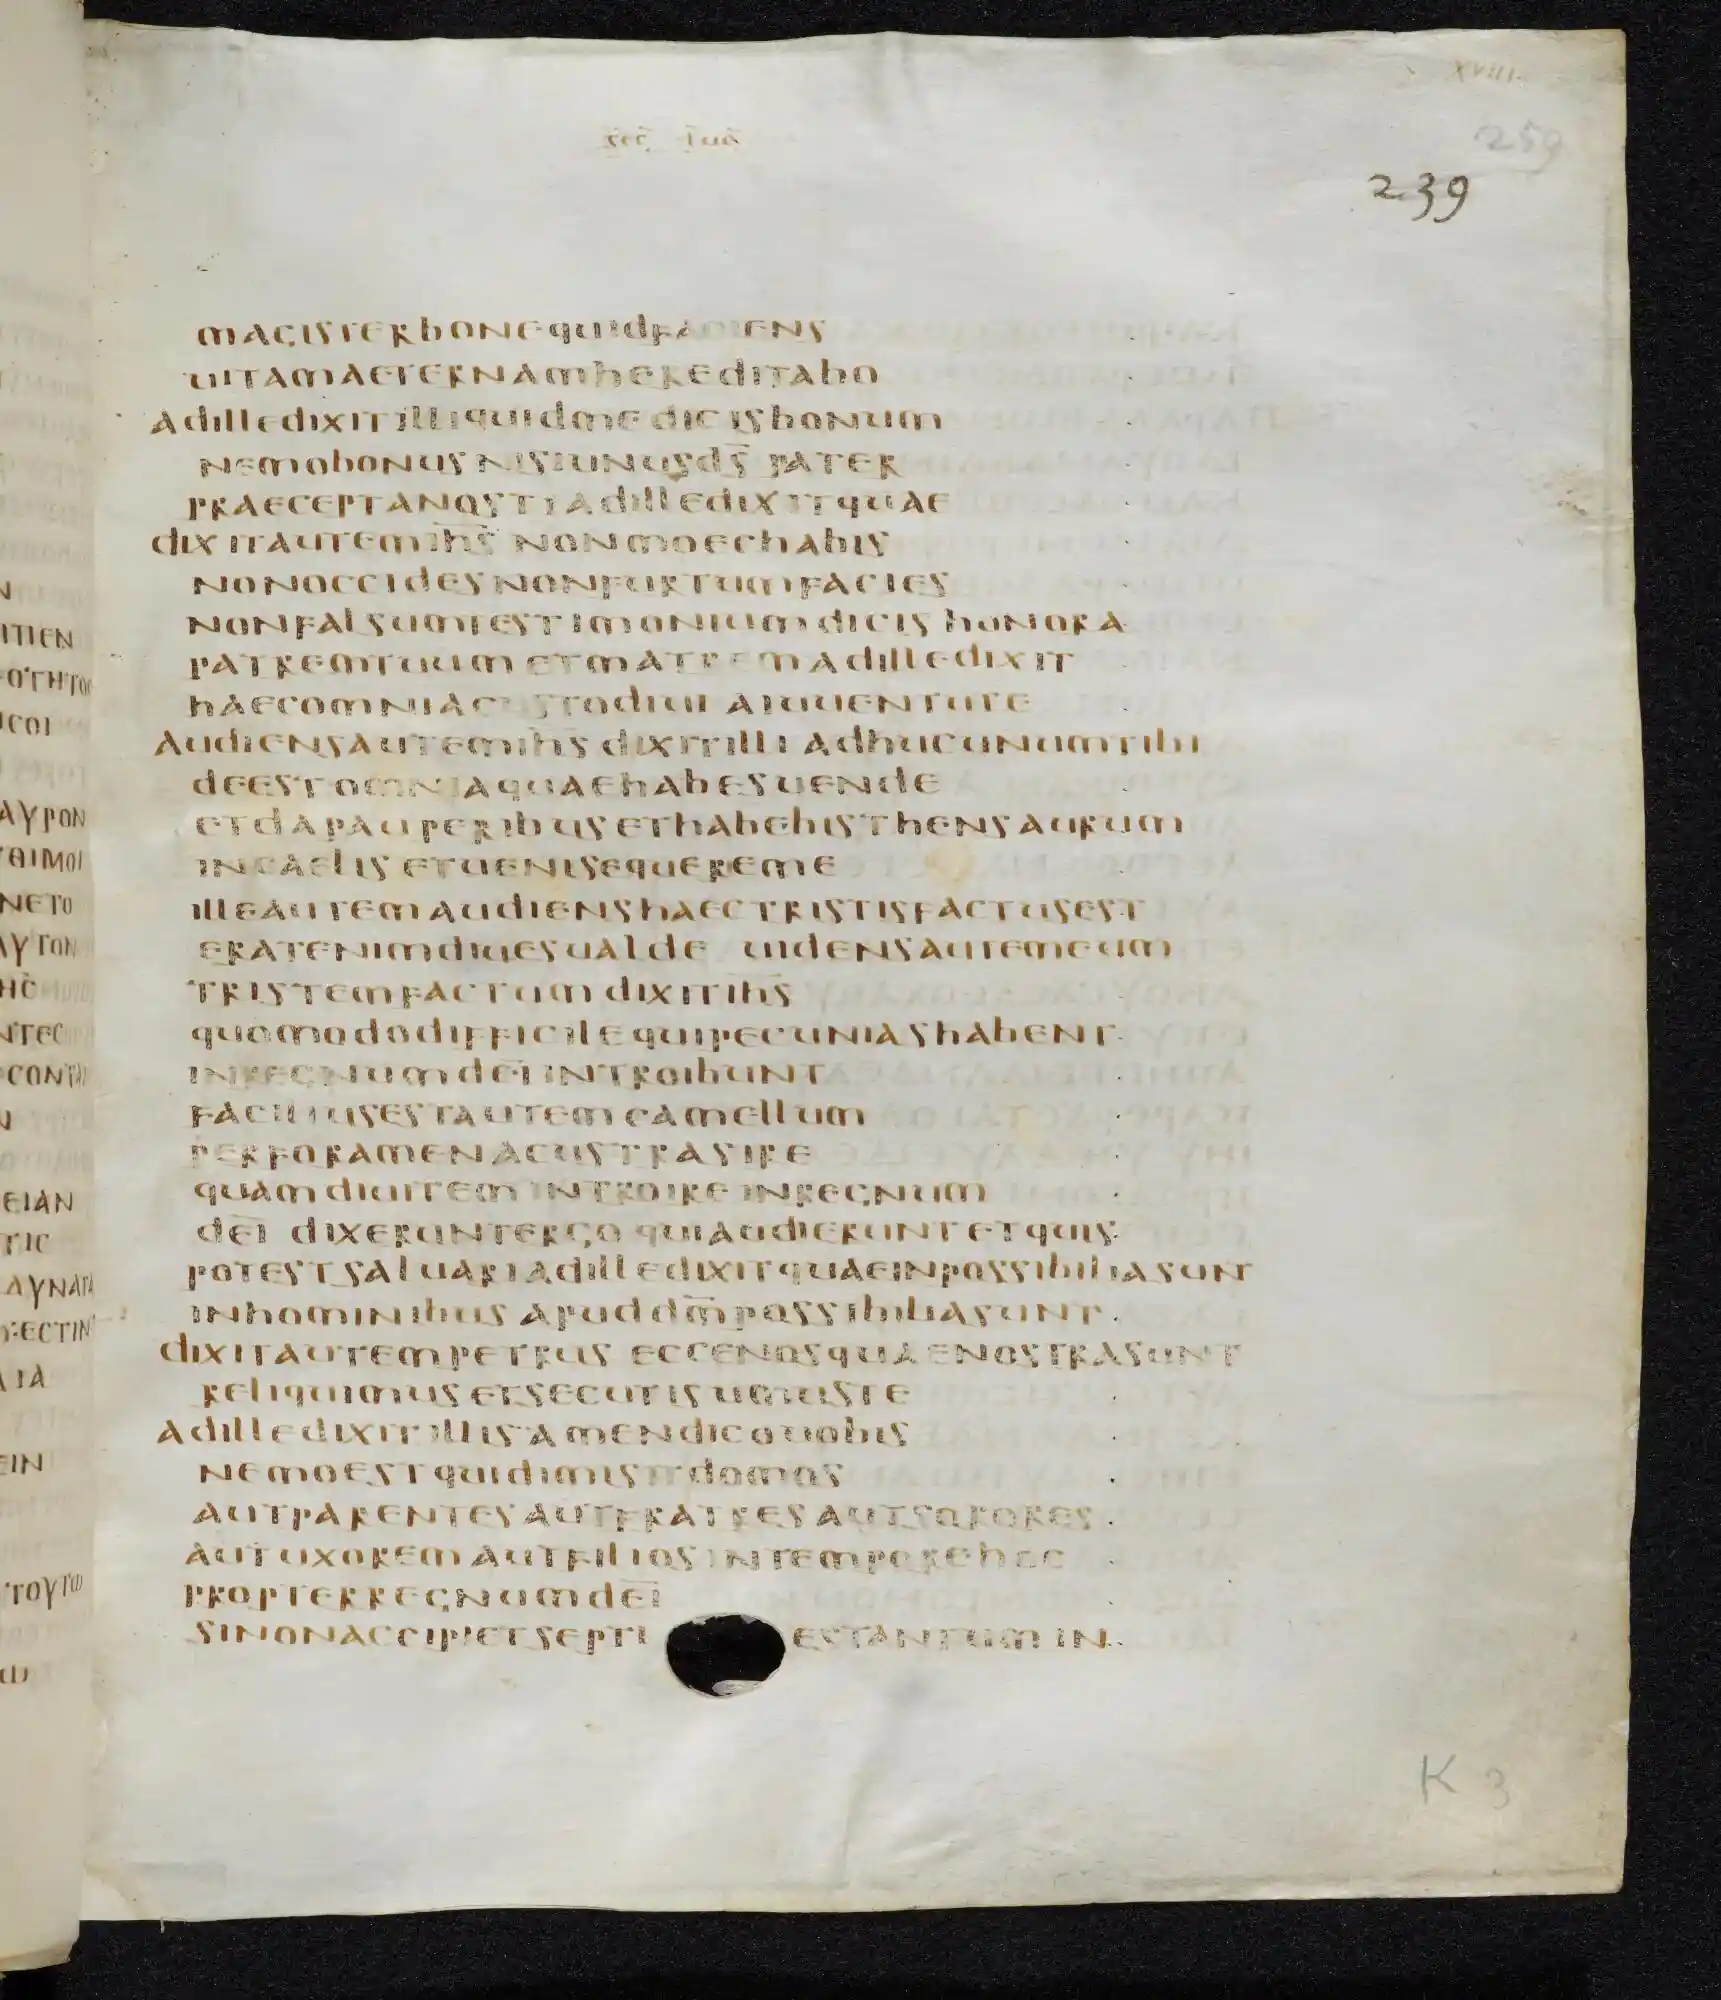 XVIII
259
239
magisterbonequidfaciens
uitamaeternamhereditabo
adilledixitilliquidmedicisbonum
nemobonusnisiunusds̅ pater
praeceptanostiadilledixitquae
dixitautemih̅s̅ nonmoechabis
nonoccidesnonfurtumfacies
nonfalsumtestimoniumdicis honora
patremtuumetmatremadilledixit
haecomniacustodiui aiuuentute
audiensautemih̅s̅ dixitilli adhucunumtibi
deestomniaquaehabesuende
etdapauperibusethabebisthensaurum
incaelisetuenisequereme
illeautemaudienshaectristisfactusest
eratenimdiuesualde uidensautemeum
tristemfactumdixitih̅s̅
quomododifficilequipecuniashabent
inregnumde̅i̅introibunt
faciliusestautemcamellum
perforamenacustrasire
quamdiuitemintroireinregnum
de̅i̅ dixeruntergoquiaudieruntetquis
potestsaluariadilledixitquaeinpossibiliasunt
inhominibus apuddm̅possibiliasunt
dixitautempetrus eccenosquaenostrasunt
reliquimusetsecutisumuste
adilledixitillisamendicouobis
nemoestquidimisitdomos
autparentesautfratresautsorores
autuxoremautfiliosintemporehoc
propterregnumde̅i̅
sinonaccipietsepti estantumin
K 3